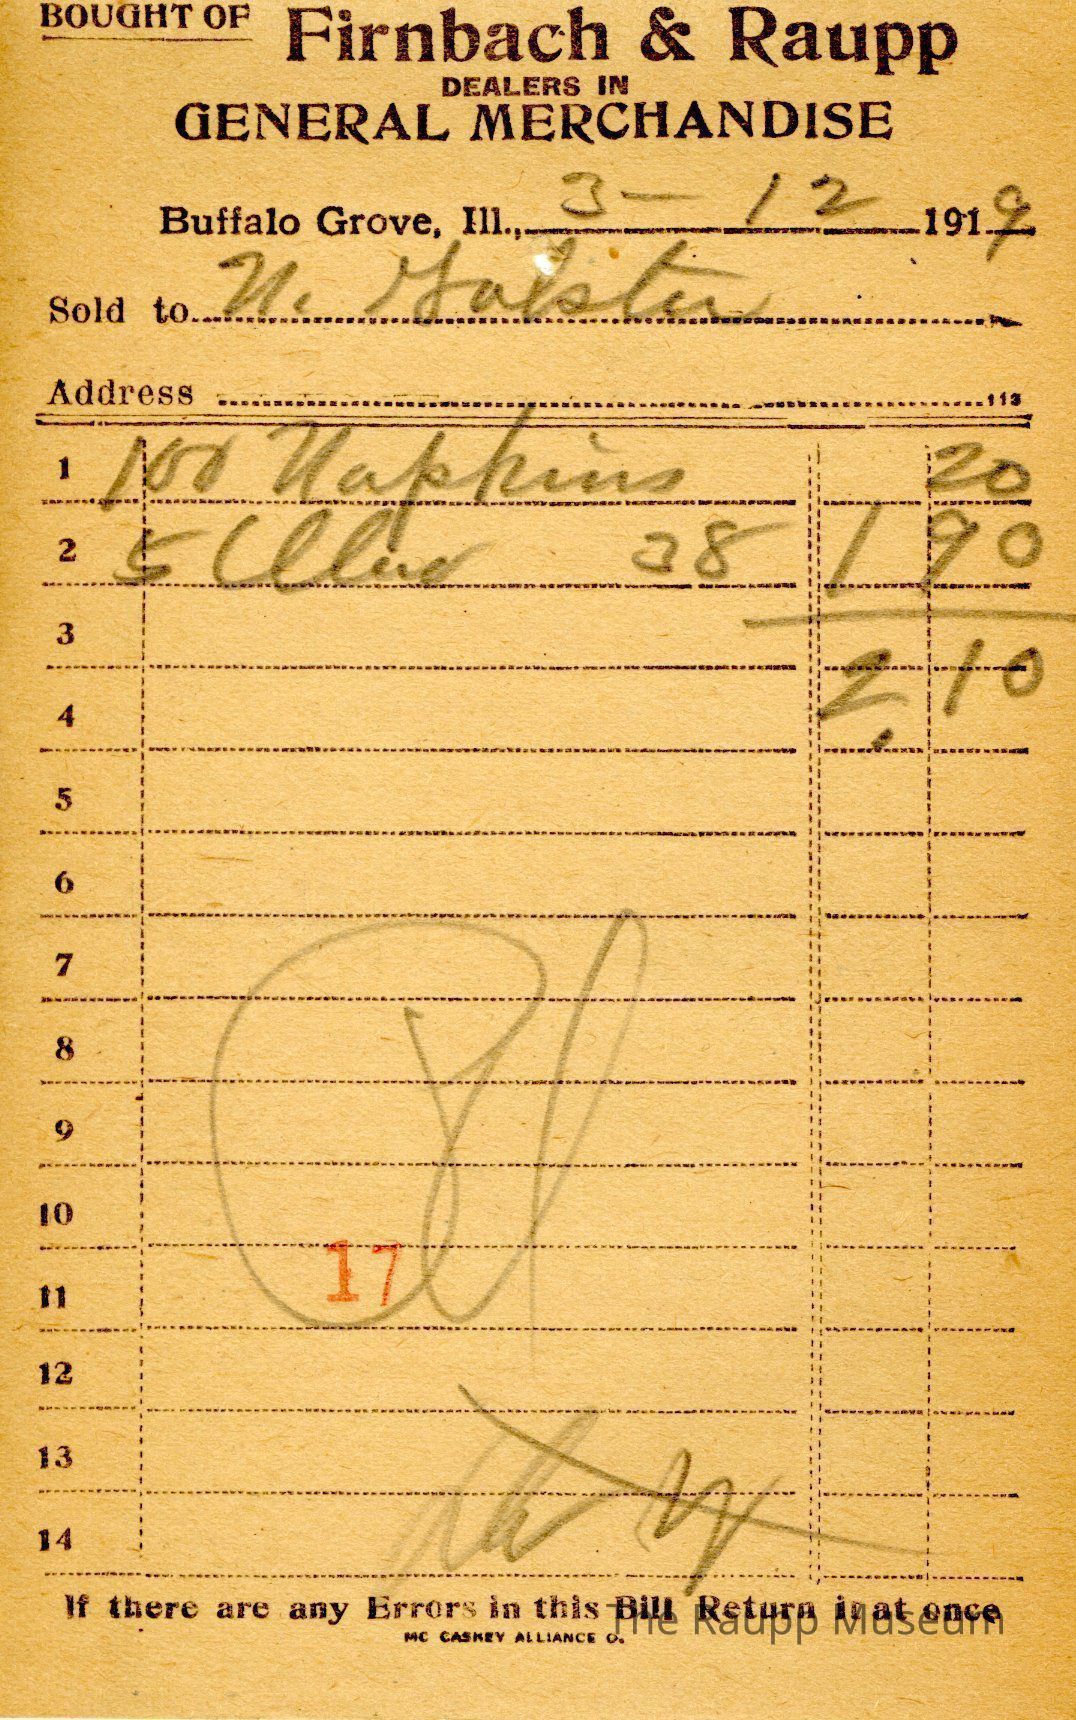 BOUGHT OF Firnbach & Raupp
DEALERS IN
GENERAL MERCHANDISE
Buffalo Grove, Ill., 3 - 12 1919
Sold to N.
Address 113
1 100 Napkins 20
2 5 38 1 90
3
2.10
4
5
6
7
8
9
10
17
11
12
13
14
If there are any Errors in this Bill Return it at once
The Raupp Museum
MC CASKEY ALLIANCE O.